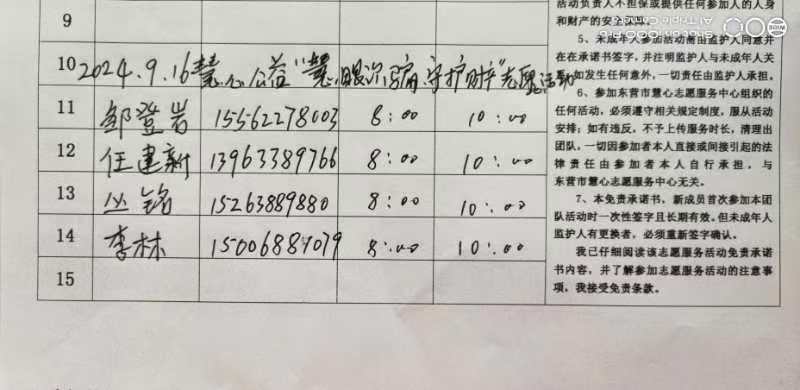 9
10 2024.9.16慧心公益“慧眼识骗,守护财产”志愿活动
11 邹登岩 15562278003 8:00 10:00
12 任建新 13963389766 8:00 10:00
13 丛铭 15263889880 8:00 10:00
14 李林 15006889079 8:00 10:00
15
活动负责人不担保或提供任何参加人的人身
和财产的安全保障。
5、未成年人参加活动需由监护人同意并
在在承诺书签字,并注明监护人与未成年人关
系,如发生任何意外,一切责任由监护人承担。
6、参加东营市慧心志愿服务中心组织的
任何活动,必须遵守相关规定制度,服从活动
安排;如有违反,不予上传服务时长,清理出
团队,一切因参加者本人直接或间接引起的法
律责任由参加者本人自行承担,与
东营市慧心志愿服务中心无关。
7、本免责承诺书,新成员首次参加本团
队活动时一次性签字且长期有效。但未成年人
监护人有更换者,必须重新签字确认。
我已仔细阅读该志愿服务活动免责承诺
书内容,并了解参加志愿服务活动的注意事
项,我接受免责条款。